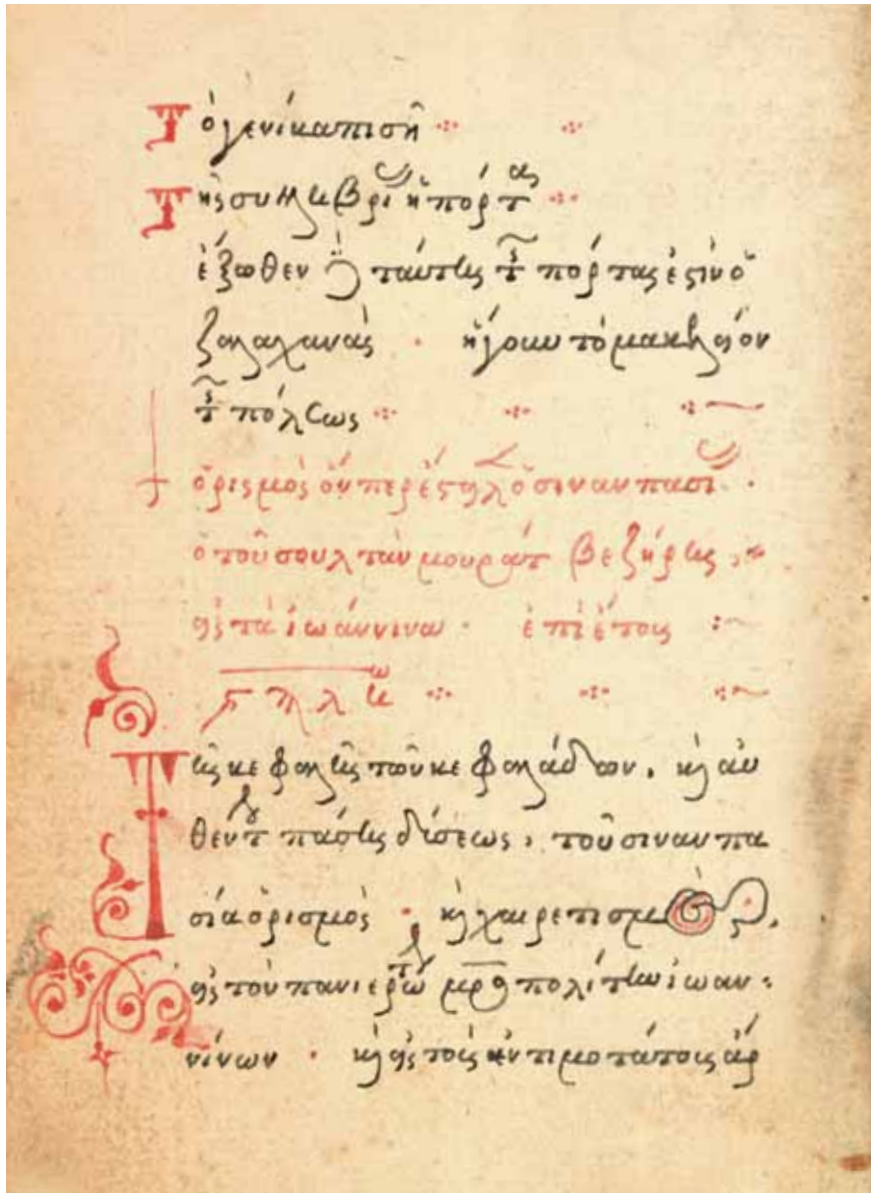 Τὸ γενίκαπισῆ
Τῆς συληβρί(ας) ἡ πόρτ(α)
ἔξωθεν δὲ ταύτης τῆς πόρτας ἐστὶν ὁ
ζαλαχανάς · ἤγουν τὸ μακελλεῖον
τῆς πόλεως
ὁρισμὸς ὅνπερ ἔστειλεν ὁ σινὰν πασί(ας) ·
ὁ τοῦ σουλτὰν μουράτ βεζήρης,
εἰς τὰ ἰωάννινα · ἐπὶ ἔτους
ϛϡλω
Τῆς κεφαλῆς τῶν κεφαλάδων, καὶ αὐ
θέντου πάσης δύσεως, τοῦ σινὰν πα
σία ὁρισμὸς · καὶ χαιρετισμὸς,
εἰς τὸν πανιερώτ(α)τ(ον) μητροπολίτην ἰωαν
νίνων · καὶ εἰς τοὺς ἐντιμοτάτους ἄρ